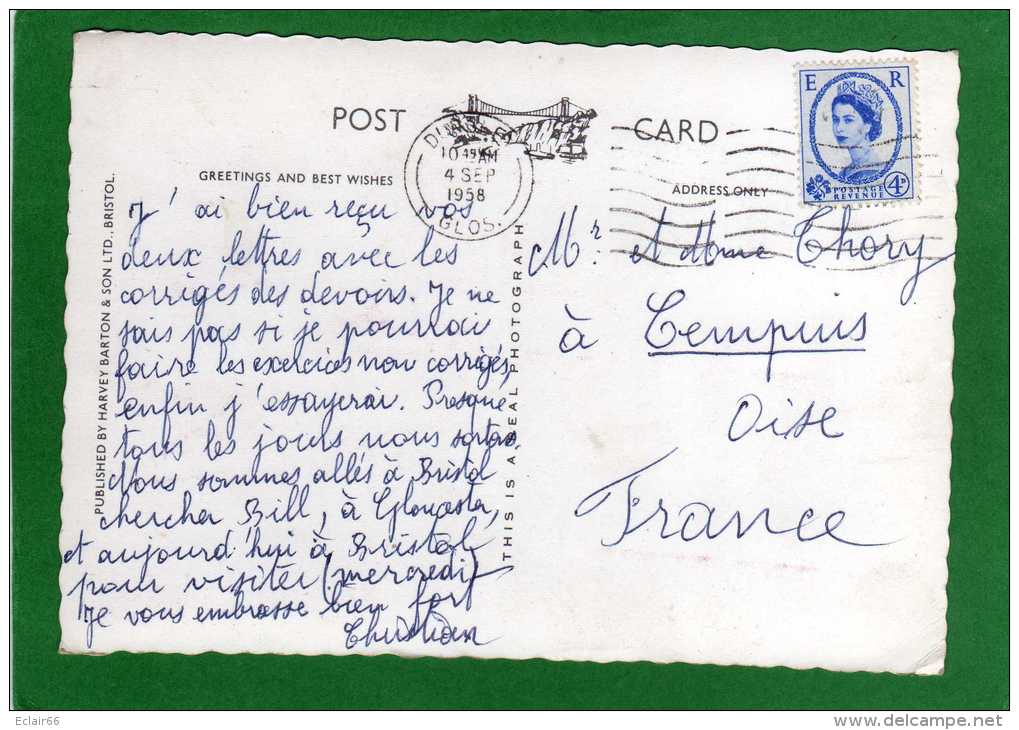 POST CARD
GREETINGS AND BEST WISHES
ADDRESS ONLY
E R
POSTAGE
REVENUE
4D
10 AM
4 SEP
1958
GLOS.
J'ai bien reçu vos
deux lettres avec les
corrigés des devoirs. Je ne
sais pas si je pourrai
faire les exercices non corrigés,
enfin j'essayerai. Presque
tous les jours nous sortons.
Nous sommes allés à Bristol
chercher Bill, à Gloucester,
et aujourd'hui à Bristol
pour visiter (mercredi)
Je vous embrasse bien fort
Christian
Mr. et Mme Thory
à Tempuis
Oise
France
PUBLISHED BY HARVEY BARTON & SON LTD., BRISTOL.
THIS IS A REAL PHOTOGRAPH
Eclair66
http://www.delcampe.net